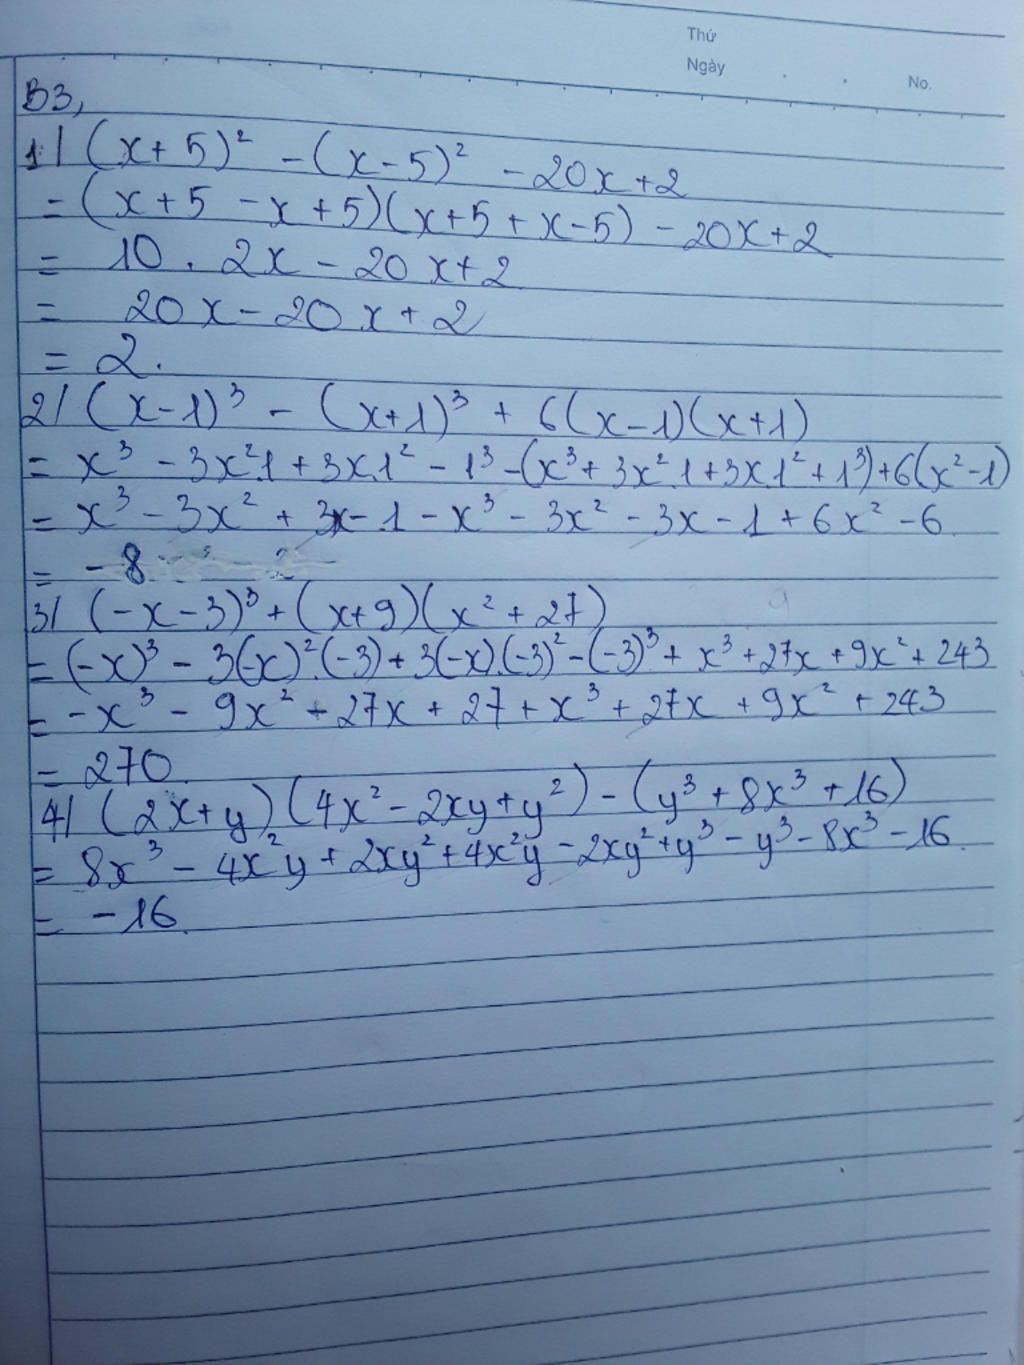 Thứ
Ngày
No.
B3,
1/ (x+5)² - (x-5)² - 20x+2
= (x+5 - x+5)(x+5+x-5) - 20x+2
= 10 . 2x - 20x+2
= 20x - 20x+2
= 2.
2/ (x-1)³ - (x+1)³ + 6(x-1)(x+1)
= x³ - 3x².1 + 3x.1² - 1³ - (x³+3x².1+3x.1²+1³)+6(x²-1)
= x³ - 3x² + 3x - 1 - x³ - 3x² - 3x - 1 + 6x² - 6
= -8
3/ (-x-3)³ + (x+9)(x²+27)
= (-x)³ - 3(-x)².(-3) + 3(-x).(-3)² - (-3)³ + x³ + 27x + 9x² + 243
= -x³ - 9x² - 27x + 27 + x³ + 27x + 9x² + 243
= 270.
4/ (2x+y)(4x² - 2xy+y²) - (y³ + 8x³ + 16)
= 8x³ - 4x²y + 2xy² + 4x²y - 2xy² + y³ - y³ - 8x³ - 16.
= -16.